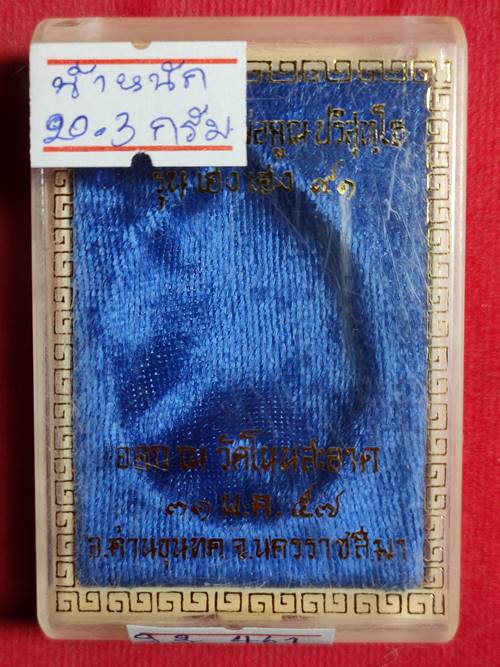 น้ำหนัก
20.3 กรัม
พ่อคูณ ปริสุทฺโธ
รุ่น เฮง เฮง ๙๑
ออก ณ วัดโนนสะอาด
๓๑ พ.ค. ๕๗
อ.ด่านขุนทด จ.นครราชสีมา